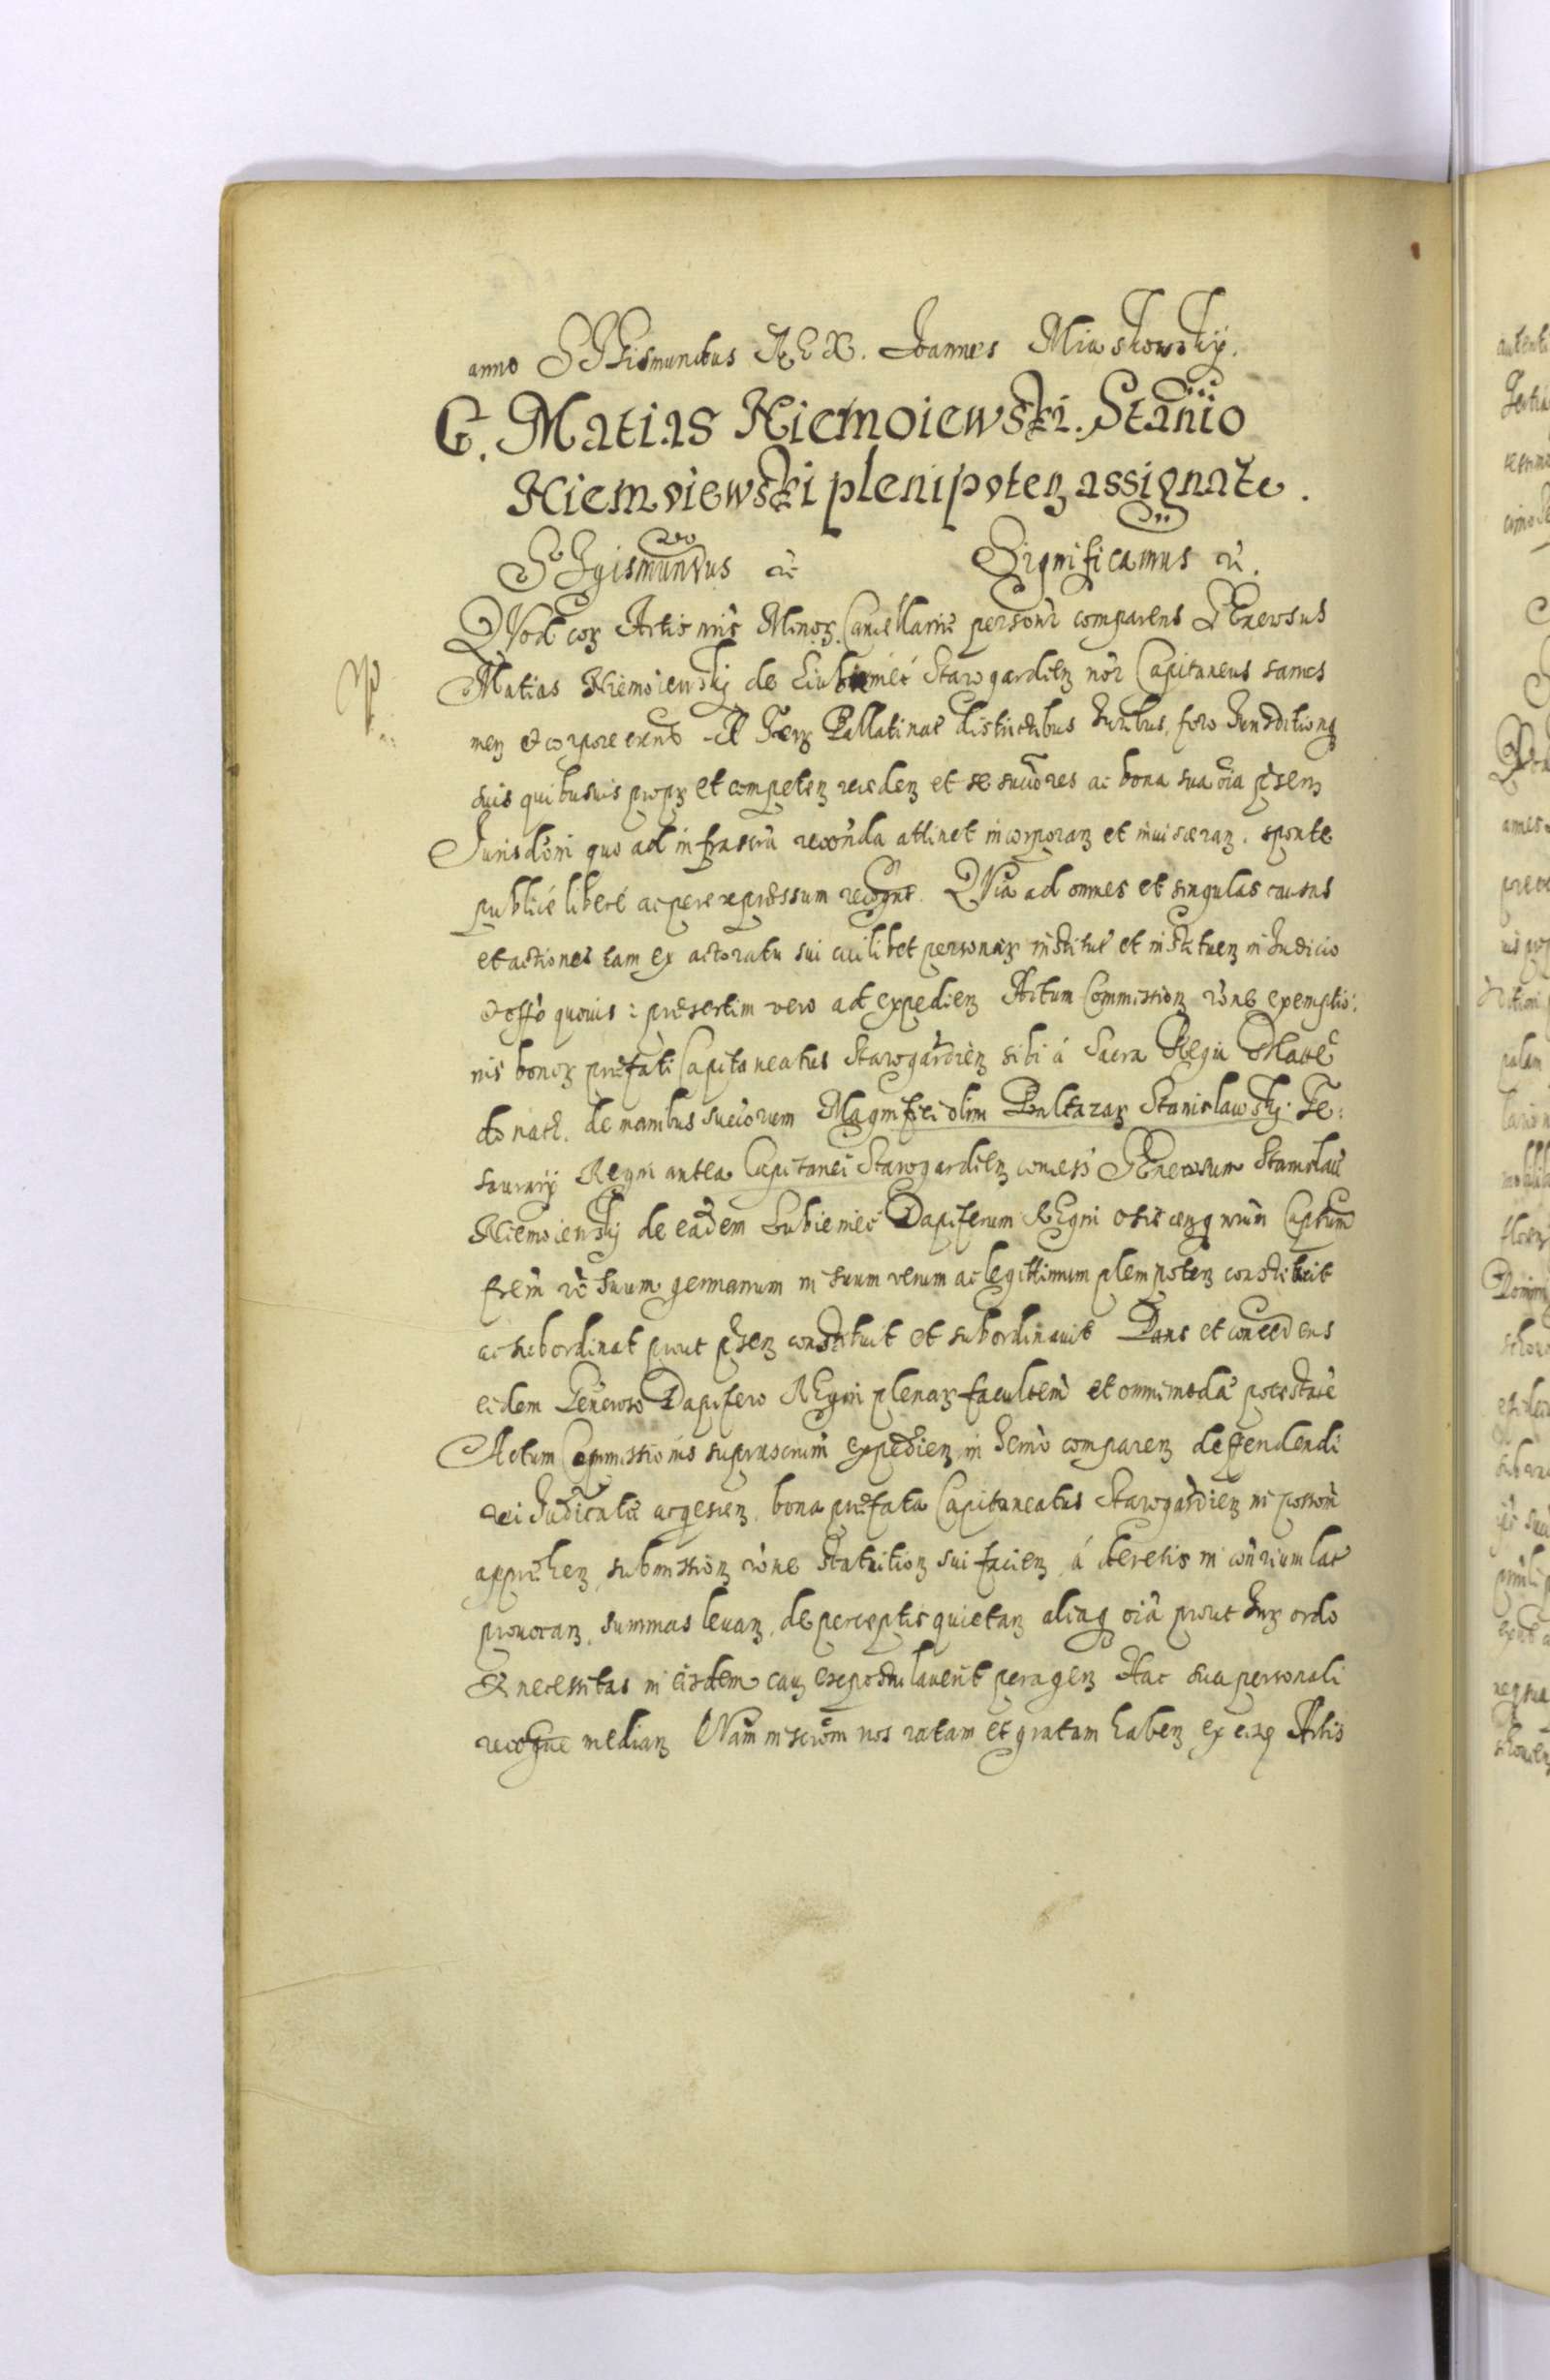 anno SIGismundus REX. Joannes Miaskowskÿ.
G. Matias Niemoiewski. Stanio
Niemoiewski plenipoten assignate.
SIgismundus etc Significamus etc.
QVod cor Actis nris Minor Cancellariae personr comparens GEnerosus
Matias Niemoiewskij de Lubiemiec Starogardien nor Capitaneus sanus
men et corpore exnt A Terr Pallatinat districtibus Juribus, foro Jurisditiong
suis quibusuis propr et competen reced et se succores ac bona sua oia psen
Jurisdoni quo ad infrascra recon̄da attinet incorporan et inuisceran. sponte
publicè liberè ac per expressum recogn̄t. QVia ad omnes et singulas causas
et actiones tam ex actoratu sui cuilibet personar institut et instituen in Judicio
et offo quouis: praesertim vero ad expedien Actum Commission rone exemptio:
nis bonor praefati Capitaneatus Starogardien sibi á Sacra Regia Matte
donat. de manibus succorum Magnifici olim Baltazar Stanislawskÿ. Te:
saurarÿ Regni antea Capitanei Starogardien concess GEnerosum Stanislau
Niemoiewskij de eadem Lubiemiec Dapiferum REgni Osiecenq nrum Captum
frem re suum germanum in suum verum ac legittimum plenipoten constituit
ac subordinat prout psen constituit et subordinauit Dans et concedens
eidem Generoso Dapifero REgni plenar facultem et omnimoda potestate
Actum Commissionis suprascrum expedien in Termo comparen deffendendi
rei Judicatae acqescen. bona praefata Capitaneatus Starogardien in possom
apprehen, submission rone Statuition sui facien, á decretis in conrium lat
prouocan, summas leuan, de perceptis quietan aliaq oia prout Jur ordo
et necessitas in eisdem caus expostulauerit peragen Hac sua personali
recogne median Nam inscrom nos ratam et gratam haben ex eisq Actis